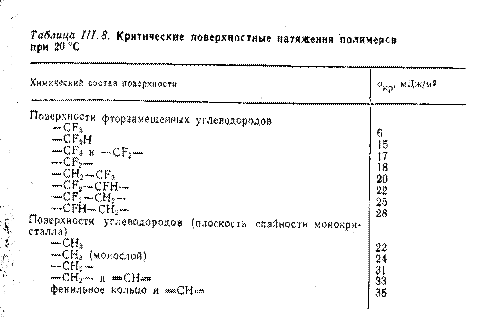 Таблица III.8. Критические поверхностные натяжения полимеров
при 20 °С
Химический состав поверхности
σкр, мДж/м²
Поверхности фторзамещенных углеводородов
—CF₃ 6
—CF₂H 15
—CF₃ и —CF₂— 17
—CF₂— 18
—CH₂—CF₃ 20
—CF₂—CFH— 22
—CF₂—CH₂— 25
—CFH—CH₂— 28
Поверхности углеводородов (плоскость спайности монокри-
сталла)
—CH₃ 22
—CH₃ (монослой) 24
—CH₂— 31
—CH₂— и ==CH== 33
фенильное кольцо и ==CH== 35